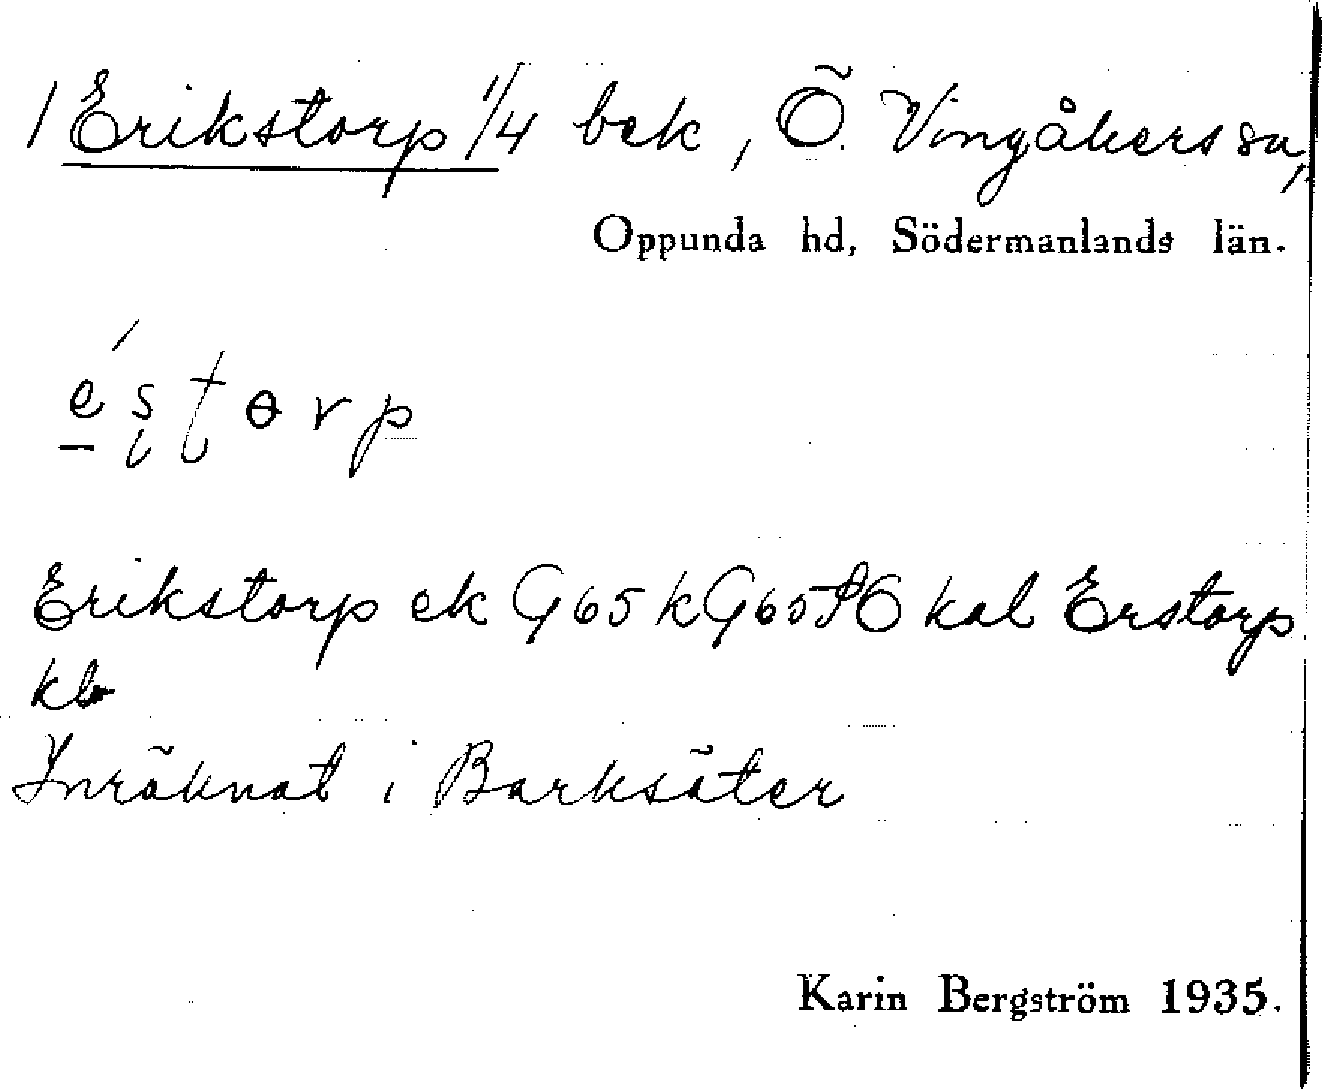 1 Erikstorp 1/4 bek, Ö. Vingåkers sn,
Oppunda hd, Södermanlands län.
éstɵrp
Erikstorp ek G65 k G65 SO kal Erstorp
kb
Inräknat i Barksäter
Karin Bergström 1935.